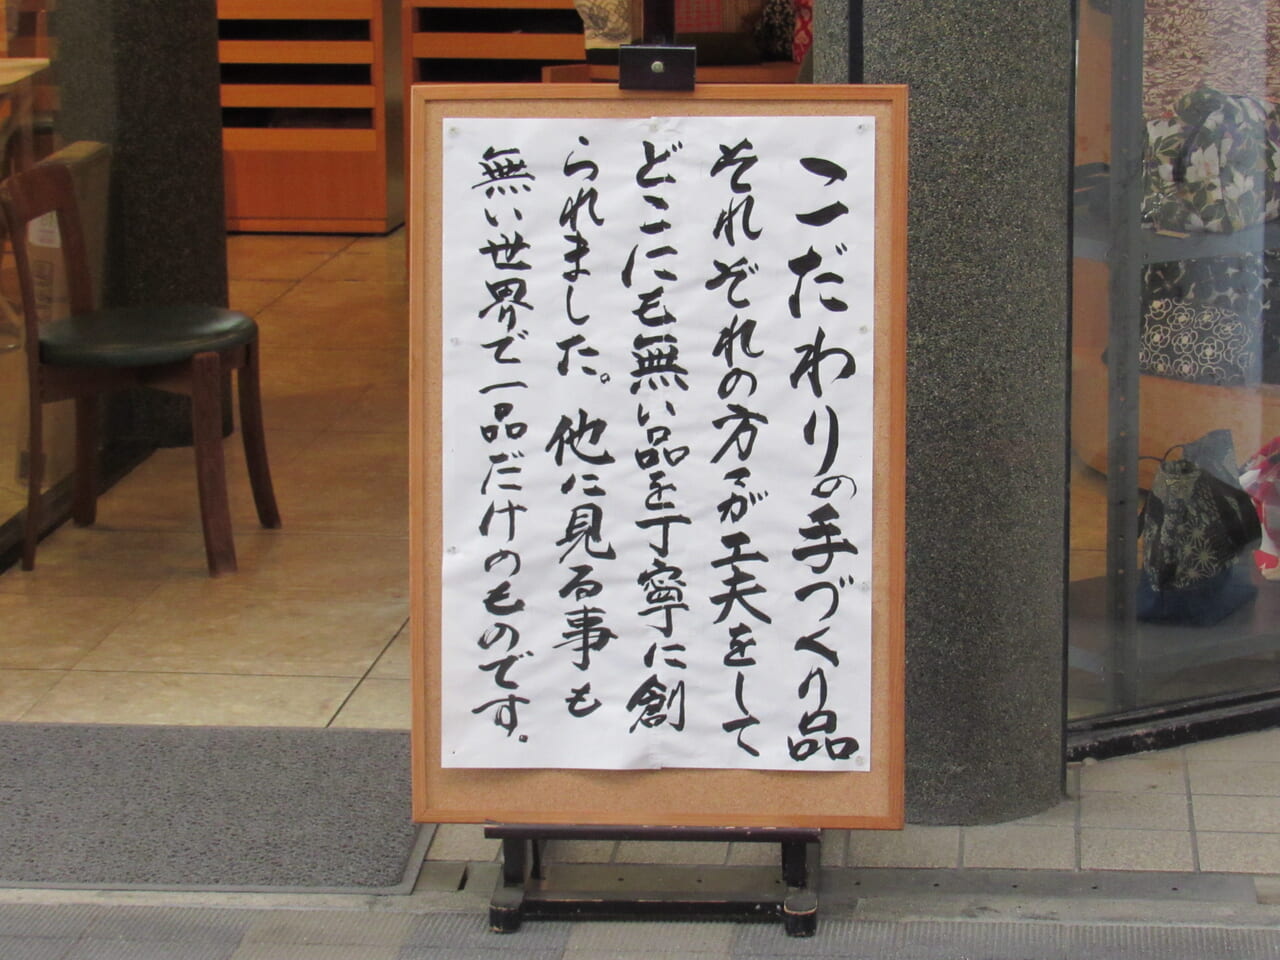 こだわりの手づくり品
それぞれの方々が工夫をして
どこにも無い品を丁寧に創
られました。他に見る事も
無い世界で一品だけのものです。